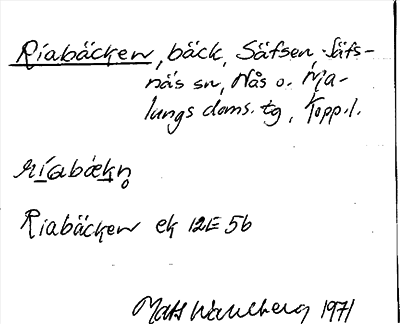 Riabäcken, bäck, Säfsen, Säfs-
näs sn, Nås o. Ma-
lungs doms. tg, Kopp.l.
ríabækn̥
Riabäcken ek 12E 5b
Mats Wahlberg 1971